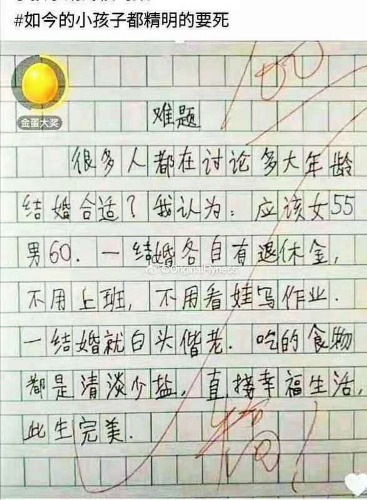 #如今的小孩子都精明的要死
100
金蛋大奖
难题
很多人都在讨论多大年龄
结婚合适？我认为：应该女55
男60．一结婚各自有退休金，
不用上班，不用看娃写作业．
一结婚就白头偕老．吃的食物
都是清淡少盐，直接幸福生活，
此生完美．